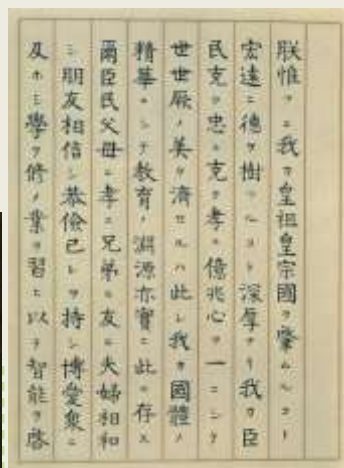 朕惟フニ我カ皇祖皇宗國ヲ肇ムルコト
宏遠ニ德ヲ樹ツルコト深厚ナリ我カ臣
民克ク忠ニ克ク孝ニ億兆心ヲ一ニシテ
世世厥ノ美ヲ濟セルハ此レ我カ國體ノ
精華ニシテ教育ノ淵源亦實ニ此ニ存ス
爾臣民父母ニ孝ニ兄弟ニ友ニ夫婦相和
シ朋友相信シ恭儉己レヲ持シ博愛衆ニ
及ホシ學ヲ修メ業ヲ習ヒ以テ智能ヲ啓